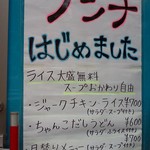 ランチ
はじめました
ライス大盛無料
スープおかわり自由
・ジャークチキン・ライス ¥700
(サラダ・スープ付)
・ちゃんこだしうどん ¥600
¥700
・日替りメニュー
(サラダ・スープ付)